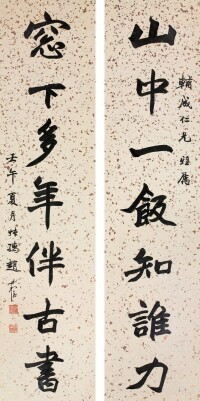 山中一飯知誰力
輔成仁兄雅屬
窓下多年伴古書
壬午夏月